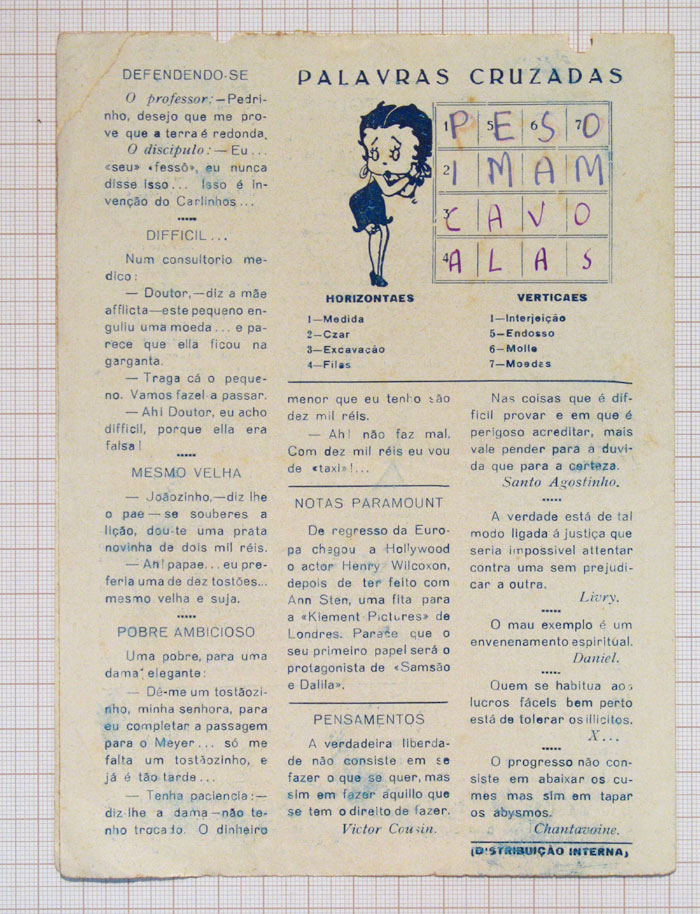 DEFENDENDO-SE
O professor:—Pedri-
nho, desejo que me pro-
ve que a terra é redonda.
O discipulo:— Eu...
«seu» «fessô», eu nunca
disse isso... Isso é in-
venção do Carlinhos...
DIFFICIL...
Num consultorio me-
dico:
— Doutor,—diz a mãe
afflicta—este pequeno en-
guliu uma moeda... e pa-
rece que ella ficou na
garganta.
— Traga cá o peque-
no. Vamos fazel-a passar.
— Ah! Doutor, eu acho
difficil, porque ella era
falsa!
MESMO VELHA
— Joãozinho,—diz lhe
o pae—se souberes a
lição, dou-te uma prata
novinha de dois mil réis.
— Ah! papae... eu pre-
feria uma de dez tostões...
mesmo velha e suja.
POBRE AMBICIOSO
Uma pobre, para uma
dama elegante:
— Dê-me um tostãozi-
nho, minha senhora, para
eu completar a passagem
para o Meyer... só me
falta um tostãozinho, e
já é tão tarde...
— Tenha paciencia:—
diz-lhe a dama—não te-
nho trocado. O dinheiro
PALAVRAS CRUZADAS
1 P 5 E 6 S 7 O
2 I M A M
3 C A V O
4 A L A S
HORIZONTAES
1—Medida
2—Czar
3—Excavação
4—Filas
VERTICAES
1—Interjeição
5—Endosso
6—Molle
7—Moedas
menor que eu tenho são
dez mil réis.
— Ah! não faz mal.
Com dez mil réis eu vou
de «taxi»!...
NOTAS PARAMOUNT
De regresso da Euro-
pa chegou a Hollywood
o actor Henry Wilcoxon,
depois de ter feito com
Ann Sten, uma fita para
a «Klement Pictures» de
Londres. Parece que o
seu primeiro papel será o
protagonista de «Samsão
e Dalila».
PENSAMENTOS
A verdadeira liberda-
de não consiste em se
fazer o que se quer, mas
sim em fazer aquillo que
se tem o direito de fazer.
Victor Cousin.
Nas coisas que é dif-
ficil provar e em que é
perigoso acreditar, mais
vale pender para a duvi-
da que para a certeza.
Santo Agostinho.
A verdade está de tal
modo ligada á justiça que
seria impossivel attentar
contra uma sem prejudi-
car a outra.
Livry.
O mau exemplo é um
envenenamento espiritual.
Daniel.
Quem se habitua aos
lucros fáceis bem perto
está de tolerar os illicitos.
X...
O progresso não con-
siste em abaixar os cu-
mes mas sim em tapar
os abysmos.
Chantavoine.
(DISTRIBUIÇÃO INTERNA)